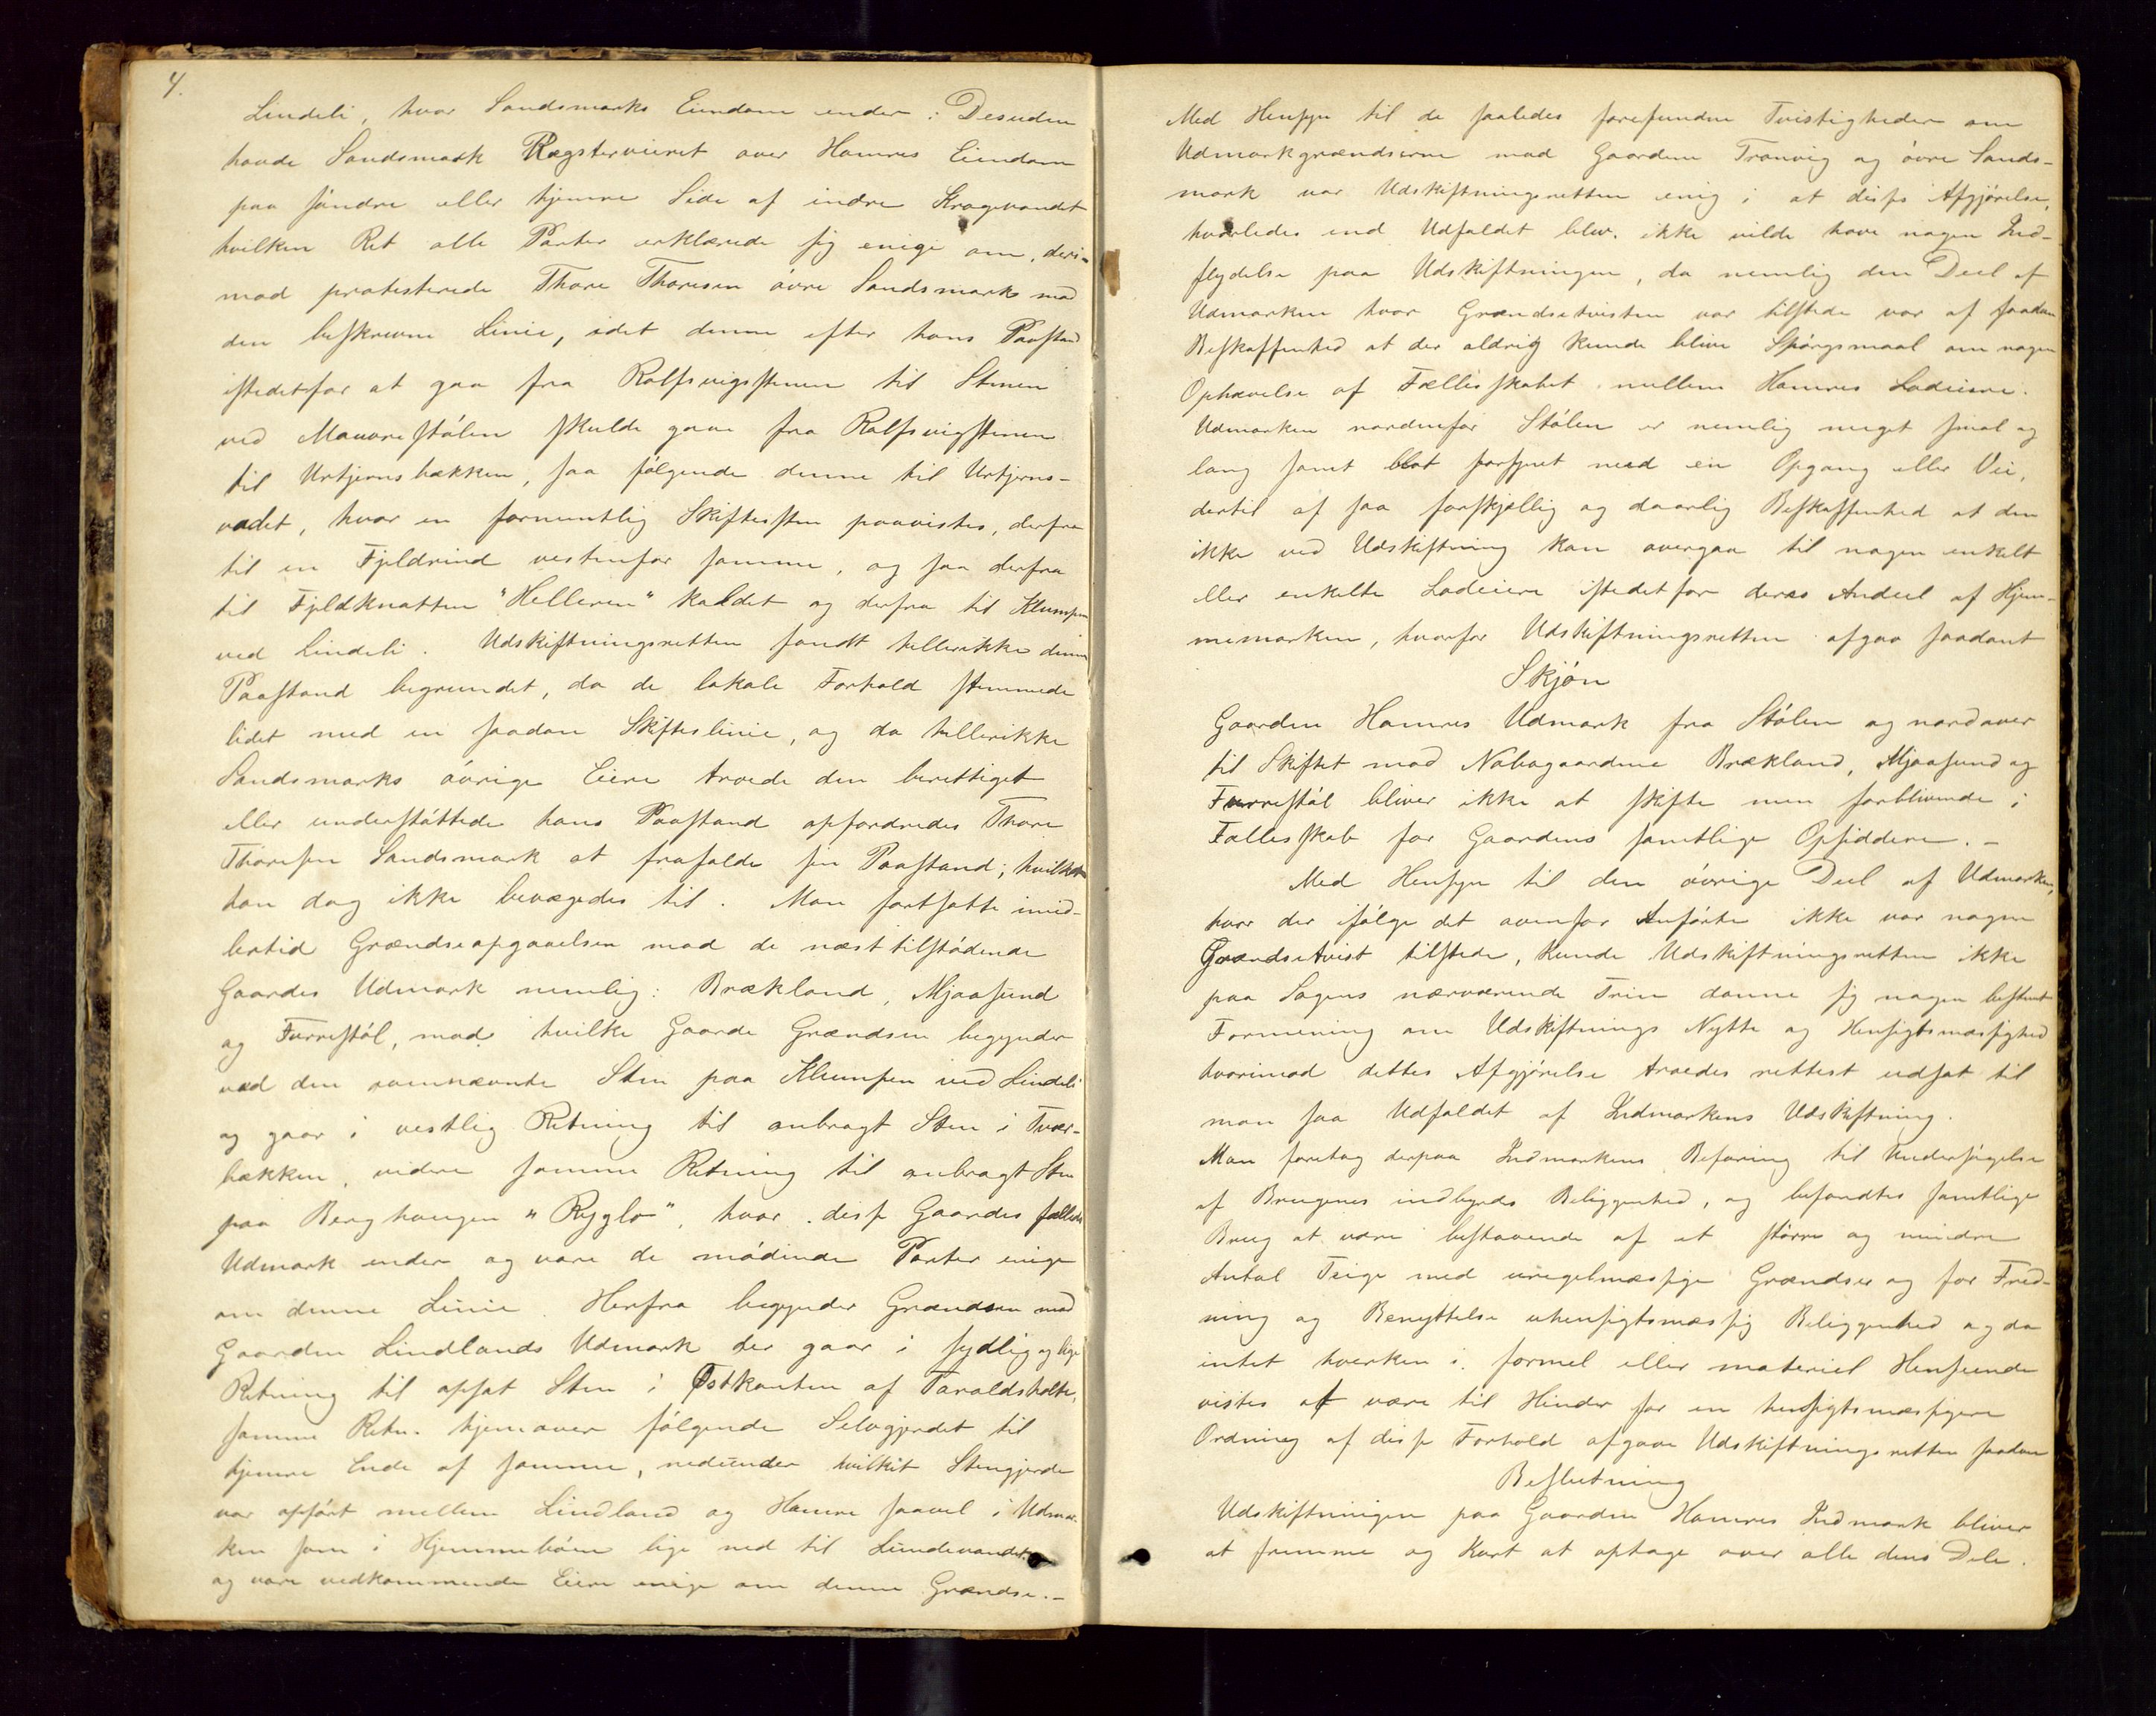 4.
Lindeli, hvor Sandsmarks Eiendom ender. Desuden
havde Sandsmark Røgsterveieret over Hamres Eiendom
paa søndre eller hjemre Side af indre Kragevandet
hvilken Ret alle Parter erklærede sig enige om, deri-
mod protesterede Thore Thoresen øvre Sandsmark mod
den beskrevne Linie, idet denne efter hans Paastand
istedetfor at gaa fra Rolfsvigstenen til Stenen
ved Mauvrestølen skulde gaae fra Rolfsvigstenen
til Urtjernsbækken, saa følgende denne til Urtjerns-
vadet, hvor en formentlig Skiftesten paavistes, derfra
til en Fjeldrind vestenfor samme, og saa derfra
til Fjeldknatten "Helleren" kaldet og derfra til Klumpen
ved Lindeli. Udskiftningsretten fandt hellerikke denne
Paastand begrundet, da de lokale Forhold stemmede
lidet med en saadan Skifteslinie, og da hellerikke
Sandsmarks øvrige Eiere troede den berettiget
eller understøttede hans Paastand opfordredes Thore
Thoresen Sandsmark at frafalde sin Paastand; hvilket
han dog ikke bevægedes til. Man fortsatte imid-
lertid Grændseopgaaelsen mod de næst tilstødende
Gaardes Udmark nemlig: Brækland, Mjaasund
og Furrestøl, mod hvilke Gaarde Grændsen begynder
ved den ovennævnte Sten paa Klumpen ved Lindeli
og gaar i vestlig Retning til anbragt Sten i Tvær-
bækken, videre samme Retning til anbragt Sten
paa Berghougen "Ryglo", hvor disse Gaardes fælleds
Udmark ender og vare de mødende Parter enige
om denne Linie. Herfra begynder Grændsen mod
Gaarden Lindlands Udmark der gaar i sydlig og lige
Retning til opsat Sten i Østkanten af Taraldsholte,
samme Retn. hjemover følgende Selvgjerdet til
hjemre Ende af samme, nedeunder hvilket Stengjerde
var opført mellem Lindland og Hamre saavel i Udmar-
ken som i Hjemmebøen lige ned til Lundevandet
og vare vedkommende Eiere enige om denne Grændse.-
Med Hensyn til de saaledes forefundne Tvistigheder om
Udmarkgrændserne mod Gaardene Tronvig og øvre Sands-
mark var Udskiftningsretten enig i at disses Afgjørelse,
hvorledes end Udfaldet blev, ikke vilde have nogen Ind-
flydelse paa Udskiftningen, da nemlig den Deel af
Udmarken hvor Grændsetvisten var tilstede var af saadan
Beskaffenhed at der aldrig kunde blive Spørgsmaal om nogen
Ophævelse af Fællesskabet mellem Hamres Lodeiere.
Udmarken nordenfor Stølen er nemlig meget smal og
lang samt blot forsynet med en Opgang eller Vei,
dertil af saa forskjellig og daarlig Beskaffenhed at den
ikke ved Udskiftning kan overgaa til nogen enkelt
eller enkelte Lodeiere istedetfor deres Andeel af Hjem-
memarken, hvorfor Udskiftningsretten afgav saadant
Skjøn
Gaarden Hamres Udmark fra Stølen og nordover
til Skiftet mod Nabogaardene Brækland, Mjaasund og
Furrestøl bliver ikke at skifte men forblivende i
Fællesskab for Gaardens samtlige Opsiddere.-
Med Hensyn til den øvrige Deel af Udmarken,
hvor der ifølge det ovenfor Anførte ikke var nogen
Grændsetvist tilstede, kunde Udskiftningsretten ikke
paa Sagens nærværende Trin danne sig nogen bestemt
Formening om Udskiftnings Nytte og Hensigtsmæssighed
hvorimod dettes Afgjørelse troedes rettest udsat til
man saa Udfaldet af Indmarkens Udskiftning.
Man foretog derpaa Indmarkens Befaring til Undersøgelse
af Brugenes indbyrdes Beliggenhed, og befandtes samtlige
Brug at være bestaaende af et større og mindre
Antal Teige med uregelmæssige Grændser og for Fred-
ning og Benyttelse uhensigtsmæssig Beliggenhed og da
intet hverken i formel eller materiel Henseende
vistes at være til Hinder for en hensigtsmæssigere
Ordning af disse Forhold afgav Udskiftningsretten saadan
Beslutning
Udskiftningen paa Gaarden Hamres Indmark bliver
at fremme og Kart at optage over alle dens Dele.